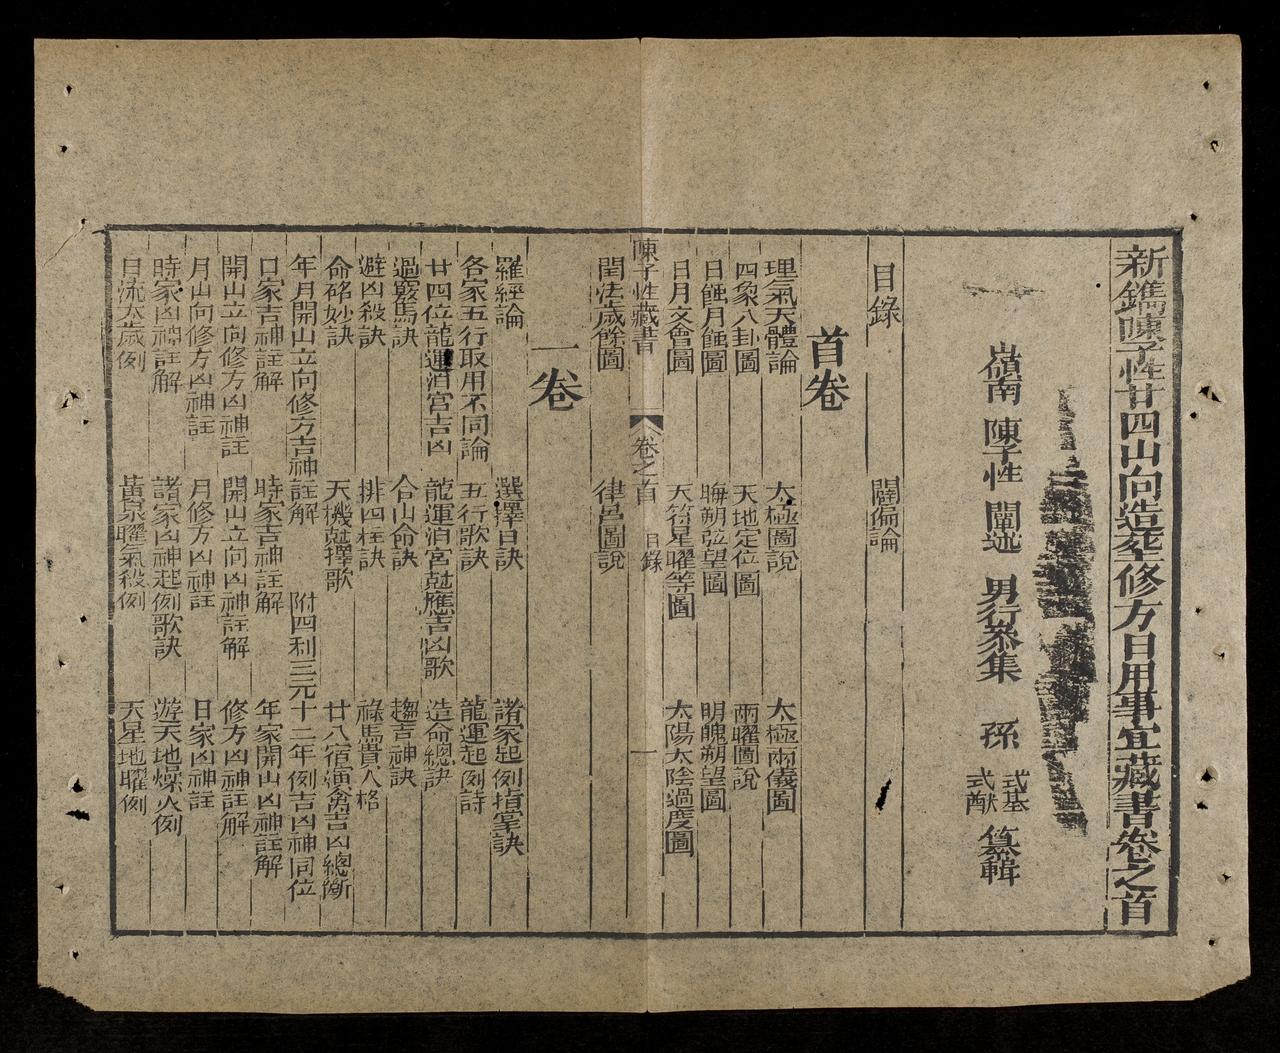 新鐫陳子性廿四山向造葬修方日用事宜藏書卷之首
嶺南 陳子性 闡述 男行叅集 孫 式基 式猷 纂輯
目錄 闢偏論
首卷
理氣天體論 太極圖說 太極兩儀圖
四象八卦圖 天地定位圖 兩曜圖說
日蝕月蝕圖 晦朔弦望圖 明魄朔望圖
日月交會圖 天符星曜等圖 太陽太陰過度圖
陳子性藏書 卷之首 目錄 一
閏法歲餘圖 律呂圖說
一卷
羅經論 選擇日訣 諸家起例指掌訣
各家五行取用不同論 五行歌訣 龍運起例詩
廿四位龍運泊宮吉凶 龍運泊宮尅應吉凶歌 造命總訣
過鬉馬訣 合山命訣 趨吉神訣
避凶殺訣 排四柱訣 祿馬貴人格
命硞妙訣 天機尅擇歌 廿八宿演禽吉凶總斷
年月開山立向修方吉神註解 附四利三元十二年例吉凶神同位
日家吉神註解 時家吉神註解 年家開山凶神註解
開山立向修方凶神註 開山立向凶神註解 修方凶神註解
月山向修方凶神註 月修方凶神註 日家凶神註
時家凶神註解 諸家凶神起例歌訣 遊天地燥火例
日流太歲例 黃泉曜氣殺例 天星地曜例